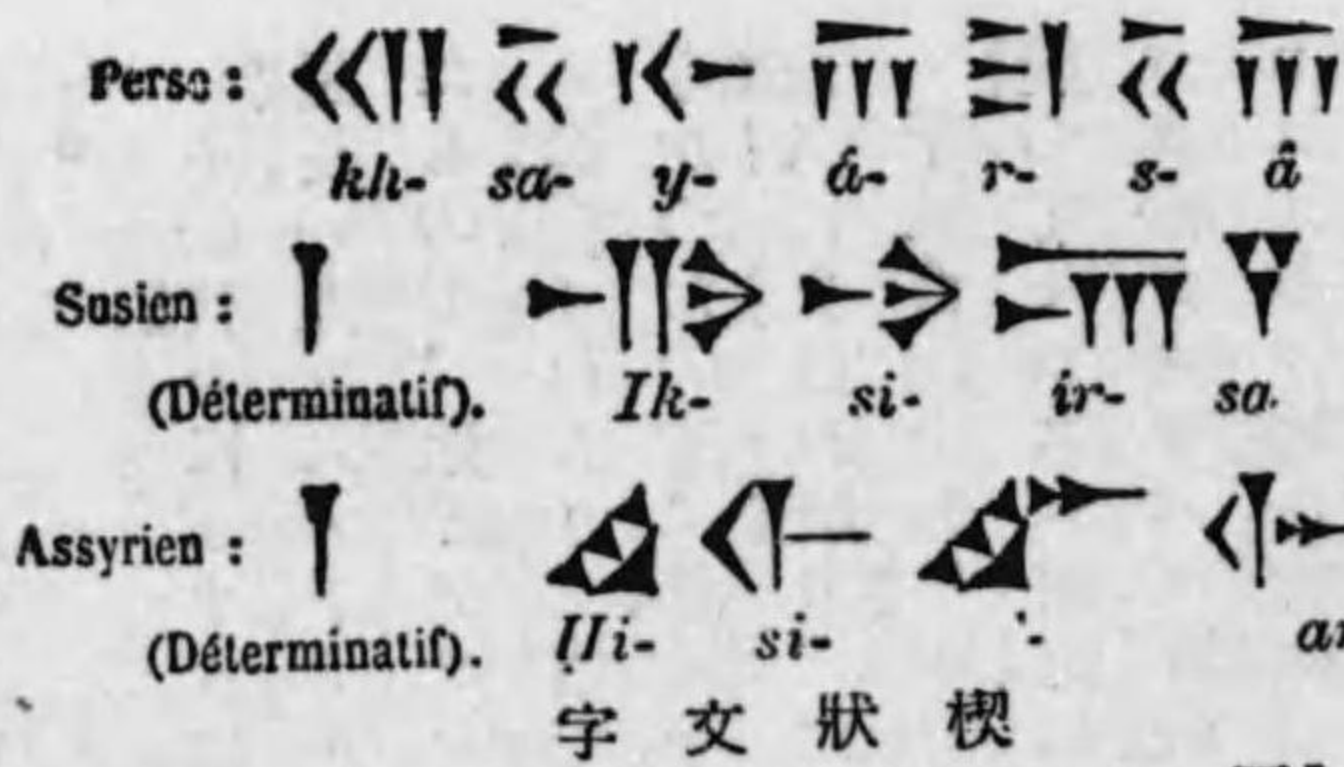 Perse : 𐎧 𐏁 𐎹 𐎠 𐎼 𐏁 𐎠
kh- sa- y- á- r- s- â
Susien : 𒁹
(Déterminatif). Ik- si- ir- sa
Assyrien : 𒁹 𒄭 𒅆 𒀪
(Déterminatif). Ḫi- si- '-
楔狀文字